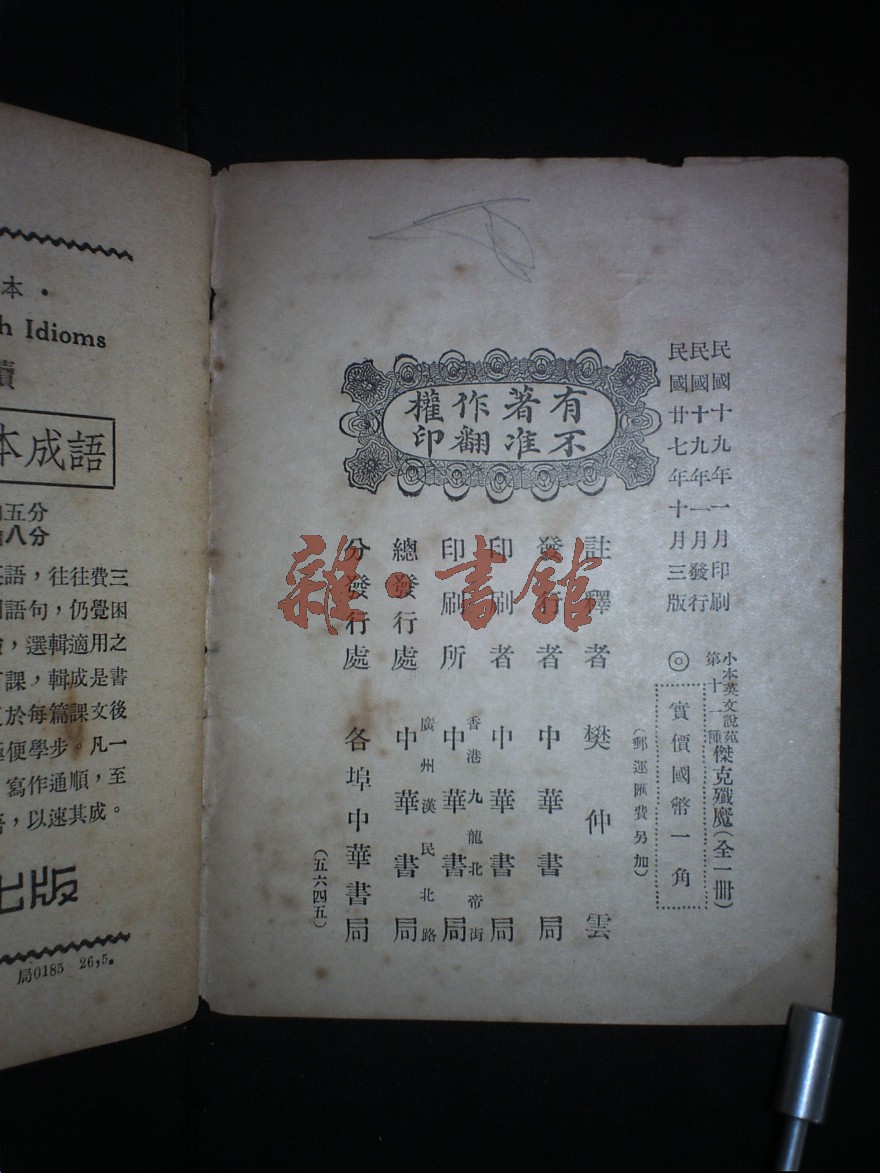 民國十九年一月印刷
民國十九年一月發行
民國廿七年十月三版
小本英文說苑
第十二種
傑克殲魔(全一冊)
◎實價國幣一角
(郵運匯費另加)
有著作權
不准翻印
註釋者 樊仲雲
發行者 中華書局
印刷者 中華書局
印刷所 中華書局
香港九龍北帝街
總發行處 中華書局
廣州漢民北路
分發行處 各埠中華書局
(五六四五)
雜·書館
本·
h Idioms
讀
本成語
五分
八分
語,往往費三
語句,仍覺困
,選輯適用之
課,輯成是書
於每篇課文後
便學步。凡一
寫作通順,至
,以速其成。
出版
局0185 26,5.